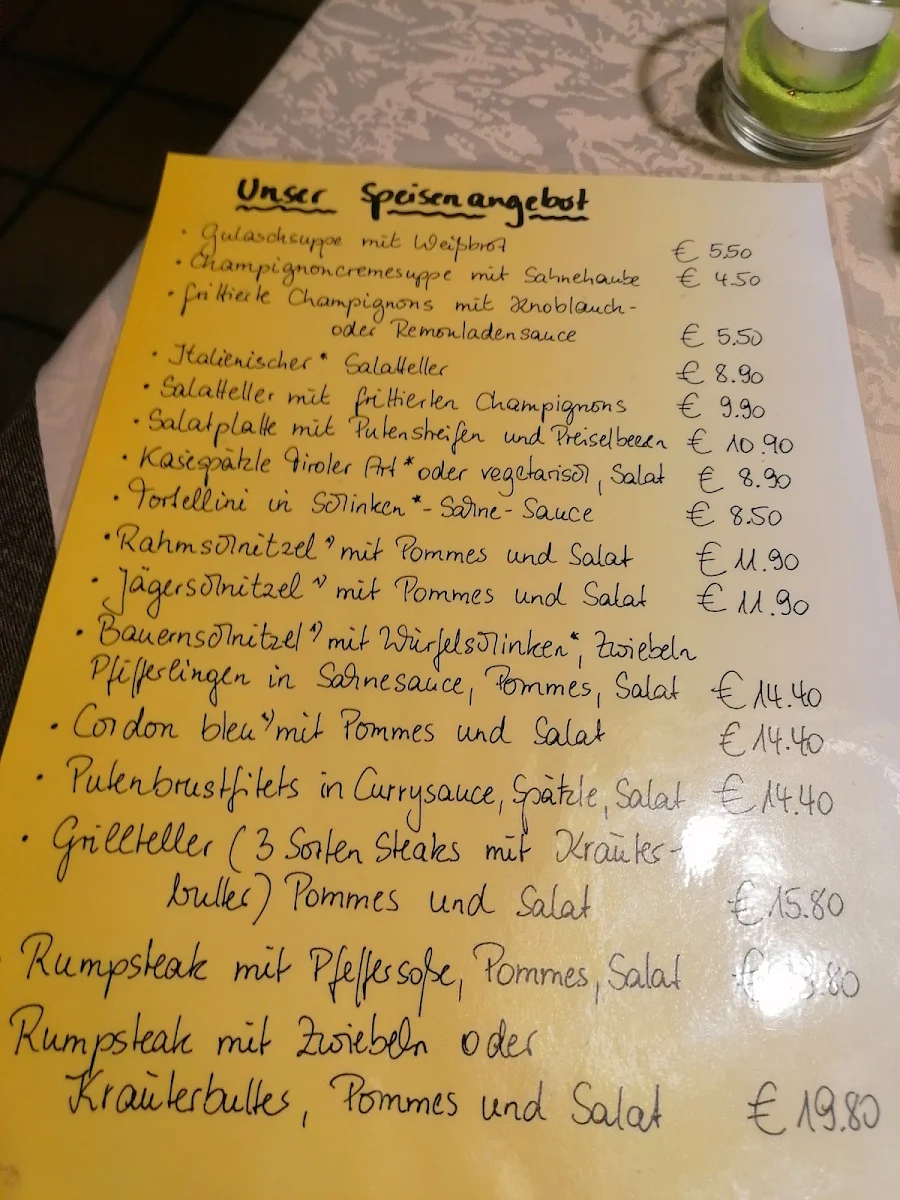 Unser Speisenangebot
• Gulaschsuppe mit Weißbrot € 5.50
• Champignoncremesuppe mit Sahnehaube € 4.50
• frittierte Champignons mit Knoblauch-
oder Remouladensauce € 5.50
• Italienischer* Salatteller € 8.90
• Salatteller mit frittierten Champignons € 9.90
• Salatplatte mit Putenstreifen und Preiselbeeren € 10.90
• Käsespätzle Tiroler Art* oder vegetarisch, Salat € 8.90
• Tortellini in Schinken*-Sahne-Sauce € 8.50
• Rahmschnitzel ¹⁾ mit Pommes und Salat € 11.90
• Jägerschnitzel ¹⁾ mit Pommes und Salat € 11.90
• Bauernschnitzel ¹⁾ mit Würfelschinken*, Zwiebeln
Pfifferlingen in Sahnesauce, Pommes, Salat € 14.40
• Cordon bleu ¹⁾ mit Pommes und Salat € 14.40
• Putenbrustfilets in Currysauce, Spätzle, Salat € 14.40
• Grillteller (3 Sorten Steaks mit Kräuter-
butter) Pommes und Salat € 15.80
Rumpsteak mit Pfeffersoße, Pommes, Salat €
Rumpsteak mit Zwiebeln oder
Kräuterbutter, Pommes und Salat € 19.80